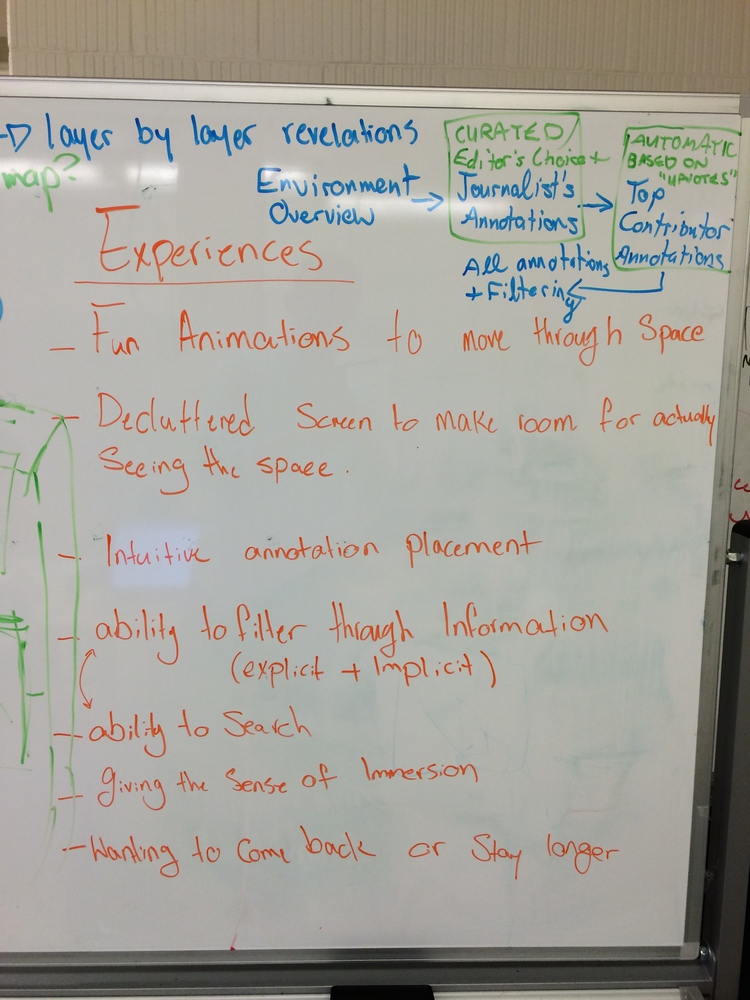 layer by layer revelations
map?
CURATED
Editor's Choice +
Journalist's
Annotations
AUTOMATIC
BASED ON
"UPVOTES"
Top
Contributor
Annotations
Environment
Overview
All annotations
+ Filtering
Experiences
- Fun Animations to move through Space
- Decluttered Screen to make room for actually
Seeing the space.
- Intuitive annotation placement
- ability to filter through Information
(explicit + Implicit)
- ability to Search
- giving the Sense of Immersion
- Wanting to Come back or Stay longer